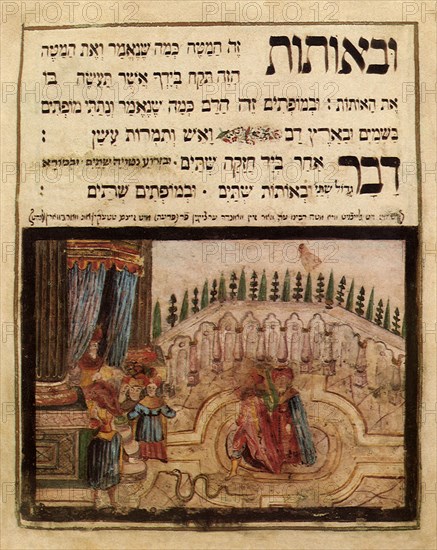 ובאותות זה המטה כמה שנאמר ואת המטה
הזה תקח בידך אשר תעשה בו
את האותות : ובמופתים זה הדם כמה שנאמר ונתתי מופתים
בשמים ובארץ דם ואש ותמרות עשן :
דבר אחר ביד חזקה שתים · ובזרוע נטויה שתים · ובמורא
גדול שתי׳ ובאותות שתים · ובמופתים שתים :
PHOTO12